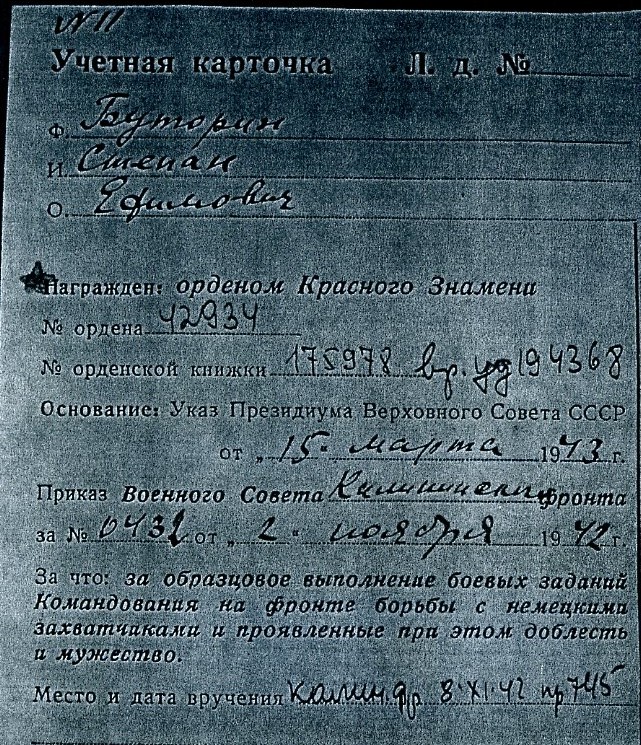 № 11
Учетная карточка Л. д. №
Ф. Буторин
И. Степан
О. Ефимович
Награжден: орденом Красного Знамени
№ ордена 42934
№ орденской книжки 175978 вр. уд 194368
Основание: Указ Президиума Верховного Совета СССР
от „15" марта 1943 г.
Приказ Военного Совета Калининский фронта
за № 0432 от „2" ноября 1942 г.
За что: за образцовое выполнение боевых заданий
Командования на фронте борьбы с немецкими
захватчиками и проявленные при этом доблесть
и мужество.
Место и дата вручения Калин. фр 8.XI.42 пр 745